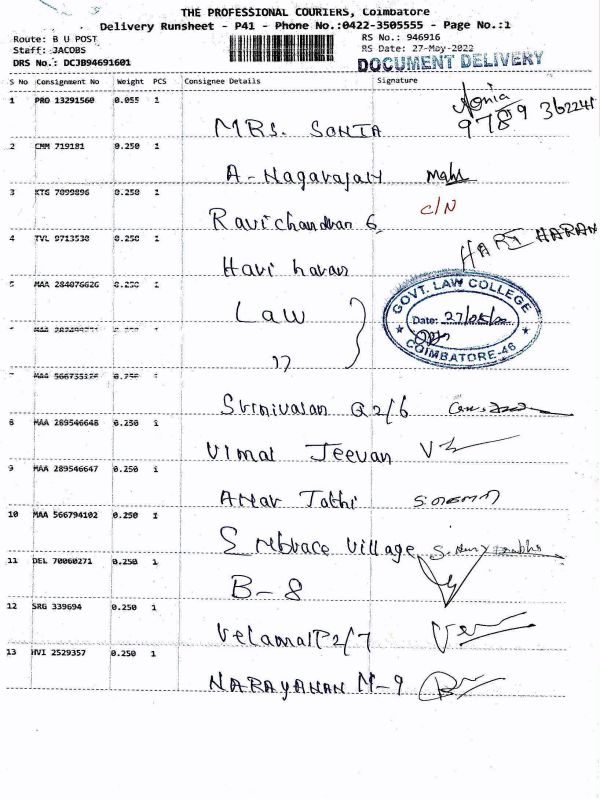 THE PROFESSIONAL COURIERS, Coimbatore
Delivery Runsheet - P41 - Phone No.:0422-3505555 - Page No.:1
Route: B U POST
RS No.: 946916
Staff: JACOBS
RS Date: 27-May-2022
DRS No.: DCJB94691601
DOCUMENT DELIVERY
S No Consignment No Weight PCS Consignee Details Signature
1 PRO 13291560 0.055 1
MRS. SONIA
Sonia
2 CMM 719181 0.250 1
A-Nagarajan
3 KTG 7099896 0.250 1
Ravichandran G
C/N
4 TVL 9713530 0.250 1
Hari haran
HARI HARAN
5 MAA 284076626 0.250 1
Law
GOVT. LAW COLLEGE
Date: 27/05/22
COIMBATORE-46
0.250 1
17
7 MAA 0.250 1
Srinivasan Q2/6
8 MAA 289546648 0.250 1
Vimal Jeevan
9 MAA 289546647 0.250 1
Anar Jothi
10 MAA 566794102 0.250 1
Embrace Village
11 DEL 70060271 0.250 1
B-8
12 SRG 339694 0.250 1
Velamal P2/7
13 HVI 2529357 0.250 1
NARAYANAN M-9